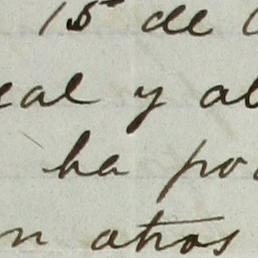 15 de
eal y al
ha po
n otros